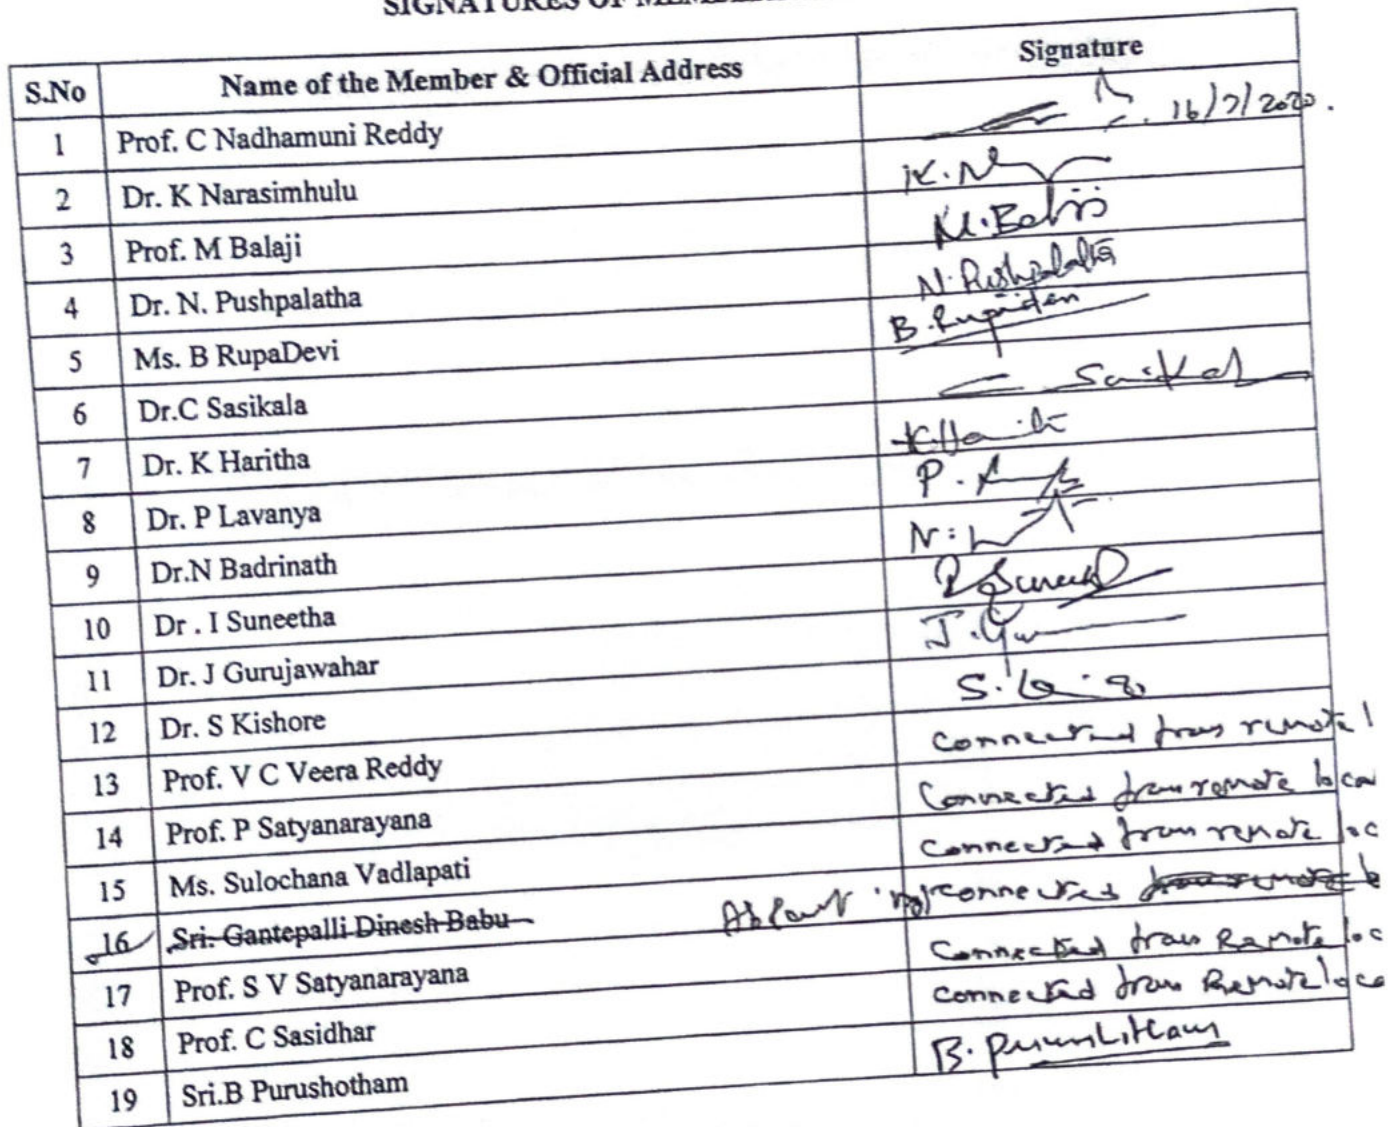 SIGNATURES OF
S.No Name of the Member & Official Address Signature
1 Prof. C Nadhamuni Reddy 16/7/2020.
2 Dr. K Narasimhulu K.N
3 Prof. M Balaji M.Balaji
4 Dr. N. Pushpalatha N.Pushpalatha
5 Ms. B RupaDevi B.Rupadevi
6 Dr.C Sasikala Sasikal
7 Dr. K Haritha K.Haritha
8 Dr. P Lavanya P.
9 Dr.N Badrinath N.
10 Dr . I Suneetha
11 Dr. J Gurujawahar J.Gu
12 Dr. S Kishore S.
13 Prof. V C Veera Reddy Connected from remote l
14 Prof. P Satyanarayana Connected from remote loca
15 Ms. Sulochana Vadlapati Connected from remote loc
16 Sri. Gantepalli Dinesh Babu Absent not connected from remote l
17 Prof. S V Satyanarayana Connected from Remote loc
18 Prof. C Sasidhar Connected from Remote loca
19 Sri.B Purushotham B. Purushotham